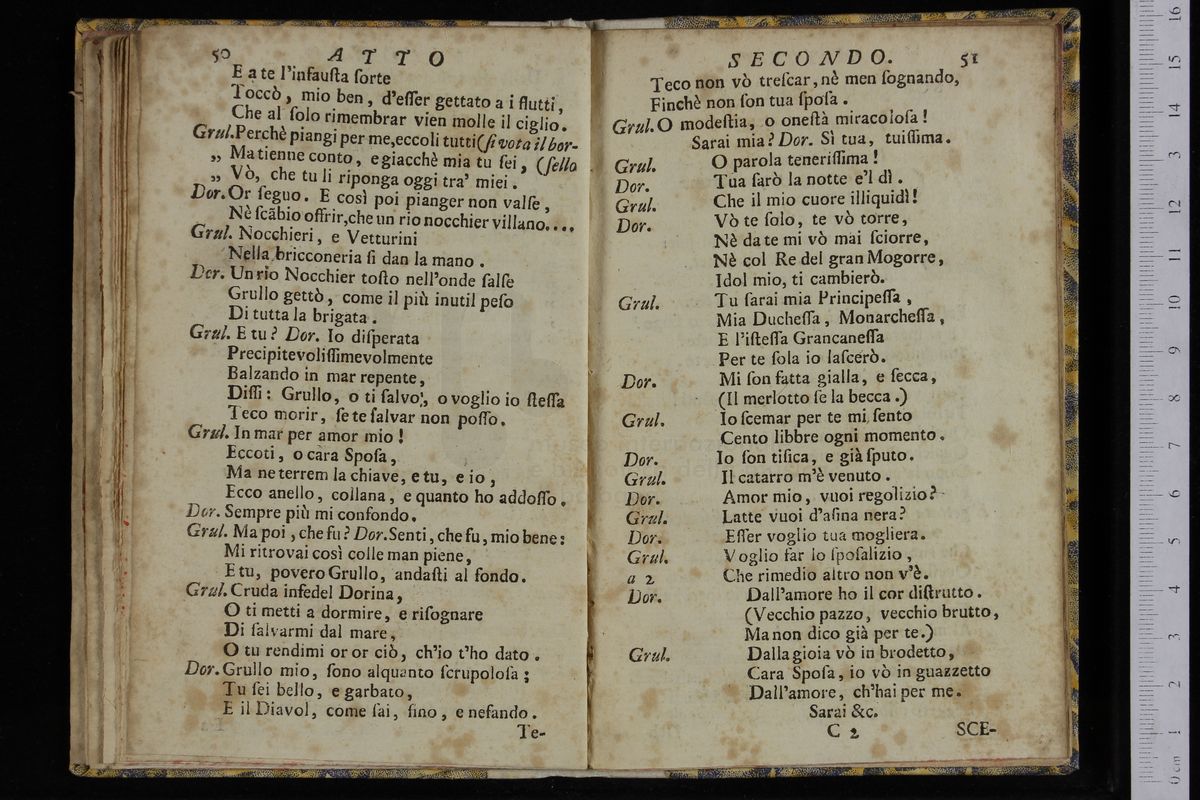 50 ATTO
E a te l'infauſta ſorte
Toccò, mio ben, d'eſſer gettato a i flutti,
Che al ſolo rimembrar vien molle il ciglio.
Grul. Perchè piangi per me, eccoli tutti (ſi vota il bor-
„ Ma tienne conto, e giacchè mia tu ſei, (ſello
„ Vò, che tu li riponga oggi tra' miei.
Dor. Or ſeguo. E così poi pianger non valſe,
Nè ſcābio offrir, che un rio nocchier villano....
Grul. Nocchieri, e Vetturini
Nella bricconeria ſi dan la mano.
Dor. Un rio Nocchier toſto nell'onde ſalſe
Grullo gettò, come il più inutil peſo
Di tutta la brigata.
Grul. E tu? Dor. Io diſperata
Precipitevoliſſimevolmente
Balzando in mar repente,
Diſſi: Grullo, o ti ſalvo, o voglio io ſteſſa
Teco morir, ſe te ſalvar non poſſo.
Grul. In mar per amor mio!
Eccoti, o cara Spoſa,
Ma ne terrem la chiave, e tu, e io,
Ecco anello, collana, e quanto ho addoſſo.
Dor. Sempre più mi confondo.
Grul. Ma poi, che fu? Dor. Senti, che fu, mio bene:
Mi ritrovai così colle man piene,
E tu, povero Grullo, andaſti al fondo.
Grul. Cruda infedel Dorina,
O ti metti a dormire, e riſognare
Di ſalvarmi dal mare,
O tu rendimi or or ciò, ch'io t'ho dato.
Dor. Grullo mio, ſono alquanto ſcrupoloſa;
Tu ſei bello, e garbato,
E il Diavol, come ſai, fino, e nefando.
Te-
SECONDO. 51
Teco non vò treſcar, nè men ſognando,
Finchè non ſon tua ſpoſa.
Grul. O modeſtia, o oneſtà miracoloſa!
Sarai mia? Dor. Sì tua, tuiſſima.
Grul. O parola teneriſſima!
Dor. Tua ſarò la notte e'l dì.
Grul. Che il mio cuore illiquidì!
Dor. Vò te ſolo, te vò torre,
Nè da te mi vò mai ſciorre,
Nè col Re del gran Mogorre,
Idol mio, ti cambierò.
Grul. Tu ſarai mia Principeſſa,
Mia Ducheſſa, Monarcheſſa,
E l'iſteſſa Grancaneſſa
Per te ſola io laſcerò.
Dor. Mi ſon fatta gialla, e ſecca,
(Il merlotto ſe la becca.)
Grul. Io ſcemar per te mi ſento
Cento libbre ogni momento.
Dor. Io ſon tiſica, e già ſputo.
Grul. Il catarro m'è venuto.
Dor. Amor mio, vuoi regolizio?
Grul. Latte vuoi d'aſina nera?
Dor. Eſſer voglio tua mogliera.
Grul. Voglio far lo ſpoſalizio,
a 2 Che rimedio altro non v'è.
Dor. Dall'amore ho il cor diſtrutto.
(Vecchio pazzo, vecchio brutto,
Ma non dico già per te.)
Grul. Dalla gioia vò in brodetto,
Cara Spoſa, io vò in guazzetto
Dall'amore, ch'hai per me.
Sarai &c.
C 2 SCE-
0 cm 1 2 3 4 5 6 7 8 9 10 11 12 13 14 15 16